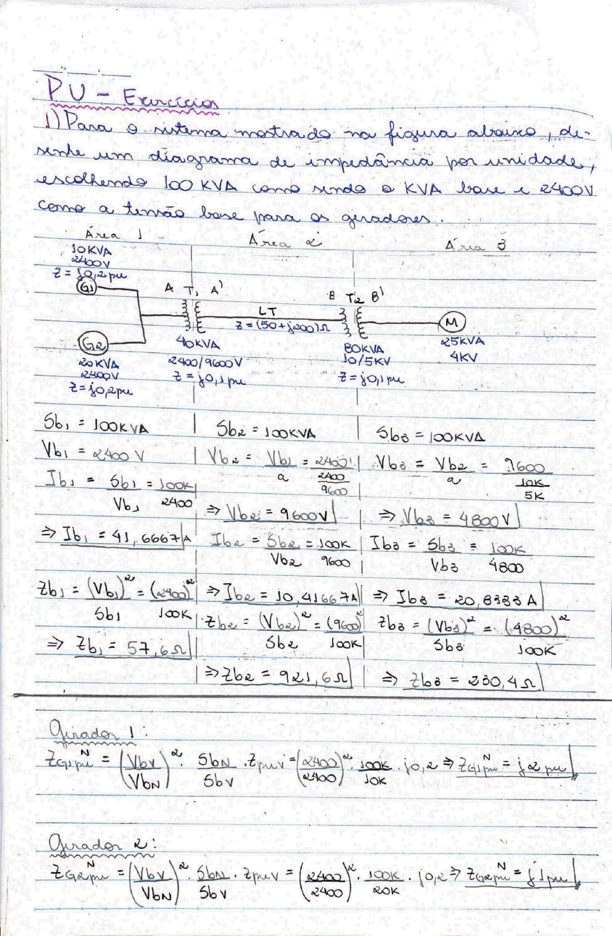 PU - Exercícios
1) Para o sistema mostrado na figura abaixo, de-
senhe um diagrama de impedância por unidade,
escolhendo 100 KVA como sendo o KVA base e 2400V
como a tensão base para os geradores.
Área 1 Área 2 Área 3
10KVA
2400V
Z = j0,2pu
G1
A T1 A'
LT
Z = (50+j200)Ω
B T2 B'
M
G2
20KVA
2400V
Z = j0,2pu
40KVA
2400/9600V
Z = j0,1pu
80KVA
10/5KV
Z = j0,1pu
25KVA
4KV
Sb1 = 100KVA Sb2 = 100KVA Sb3 = 100KVA
Vb1 = 2400V Vb2 = Vb1/a = 2400/(2400/9600) Vb3 = Vb2/a = 9600/(10K/5K)
Ib1 = Sb1/Vb1 = 100K/2400 ⇒ Vb2 = 9600V ⇒ Vb3 = 4800V
⇒ Ib1 = 41,6667A Ib2 = Sb2/Vb2 = 100K/9600 Ib3 = Sb3/Vb3 = 100K/4800
Zb1 = (Vb1)²/Sb1 = (2400)²/100K ⇒ Ib2 = 10,41667A ⇒ Ib3 = 20,8333A
⇒ Zb1 = 57,6Ω Zb2 = (Vb2)²/Sb2 = (9600)²/100K Zb3 = (Vb3)²/Sb3 = (4800)²/100K
⇒ Zb2 = 921,6Ω ⇒ Zb3 = 230,4Ω
Gerador 1:
ZG1pu^N = (VbV/VbN)² · SbN/SbV · ZpuV = (2400/2400)² · 100K/10K · j0,2 ⇒ ZG1pu^N = j2pu
Gerador 2:
ZG2pu^N = (VbV/VbN)² · SbN/SbV · ZpuV = (2400/2400)² · 100K/20K · j0,2 ⇒ ZG2pu^N = j1pu